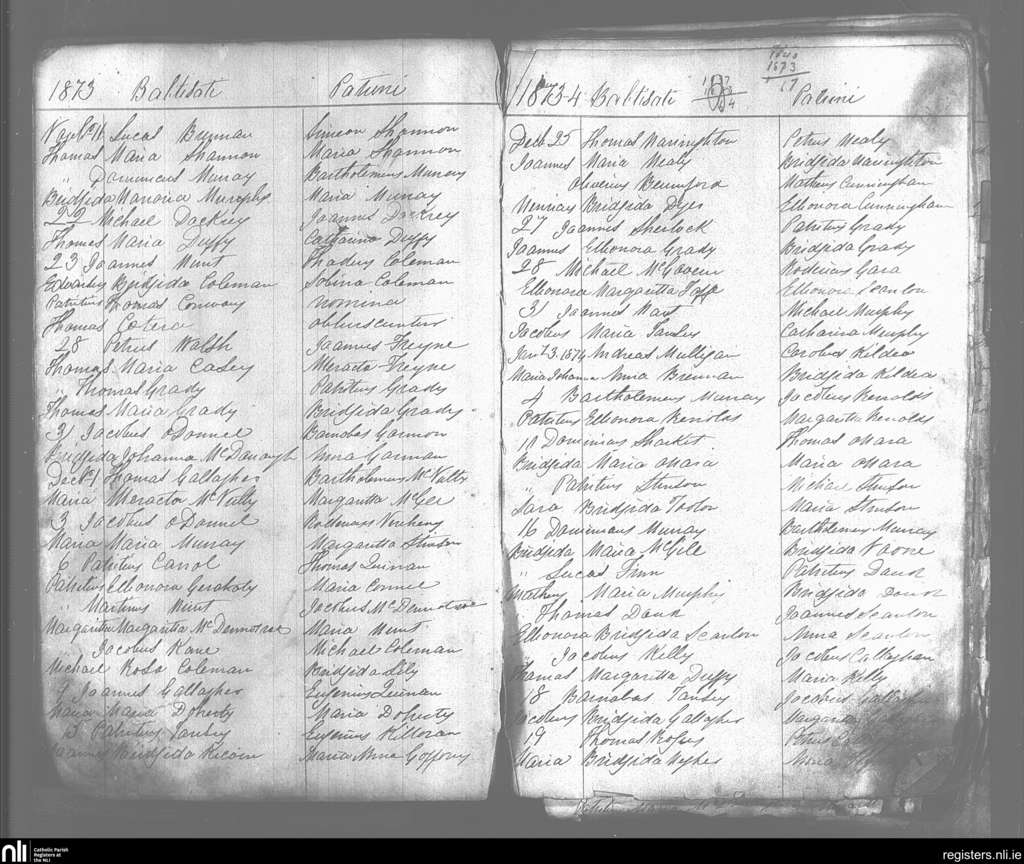 1873 Baltisati Patrini
Novbr 16 Lucas Brennan Simeon Shannon
Thomas Maria Shannon Maria Shannon
" Dominicus Murray Bartholemeus Murray
Bridgida Honoria Murphy Maria Murray
22 Michael Dockrey Joannes Dockrey
Thomas Maria Duffy Catharina Duffy
23 Joannes Hunt Thadeus Coleman
Edvardus Bridgida Coleman Sobina Coleman
Patritius Thomas Conway Nomina
Thomas Cotera
28 Petrus Walsh Joannes Freyne
Thomas Maria Casey Atteracta Freyne
" Thomas Grady Patritius Grady
Thomas Maria Grady Bridgida Grady
31 Jacobus O Donnel Barnabas Gannon
Bridgida Johanna McDanagh Anna Gannan
Decbr 1 Thomas Gallagher Bartholemeus McNulty
Maria Atteracta McNulty Margaritta McGee
3 Jacobus O Donnel
Maria Maria Murray Margaritta Stenson
6 Patritius Carrol Thomas Quinan
Patritius Ellionora Geraholy Maria
" Martinus Hunt Jacobus McDermotroe
Margaritta Margaritta McDermotroe Maria Hunt
" Jacobus Kane Michael Coleman
Michael Rosa Coleman Bridgida
9 Joannes Gallagher Eugenius Quinan
Maria Maria Doherty Maria Doherty
13 Patritius Tansey Eugenius Killoran
Joannes Bridgida Maria Anne Goffony
1873-4 Baltisati Patrini
1840
1873
17
Decb 25 Thomas Navinghton Petrus Healy
Joannes Maria Healy Bridgida Navinghton
Oliverius Beumford Matheus Cunningham
Henricus Bridgida Dyer Ellionora Cunningham
27 Joannes Sherlock Patritius Grady
Joannes Ellionora Grady Bridgida Grady
28 Michael McGovern Rodericus Gara
Ellionora Margaritta Taffe Ellionora Scanlon
31 Joannes Hart Michael Murphy
Jacobus Maria Tansey Catharina Murphy
Janr 3. 1874 Andreas Mulligan Carolus Kildea
Maria Johanna Anna Brennan Bridgida Kildea
4 Bartholemeus Murray Jacobus Renolds
Patritius Ellionora Renolds Margaritta Renolds
11 Dominicus Sharket Thomas O Hara
Bridgida Maria O Hara Maria O Hara
" Patritius Stenson Michael Stenson
Sara Bridgida Foster Maria Stenson
16 Dominicus Murray Bartholemeus Murray
Bridgida Maria McGill Bridgida Noone
" Lucas Finn Patritius
Matheus Maria Murphy Bridgida
Thomas Joannes Scanlon
Ellionora Bridgida Scanlon Anna Scanlon
" Jacobus Kelly Jacobus Callaghan
Thomas Margaritta Duffy Maria Kelly
18 Barnabas Tansey Jacobus Gallagher
Jacobus Bridgida Gallagher Margaritta
19 Thomas Rogers Petrus
Maria Bridgida Hughes
nli Catholic Parish Registers at the NLI
registers.nli.ie